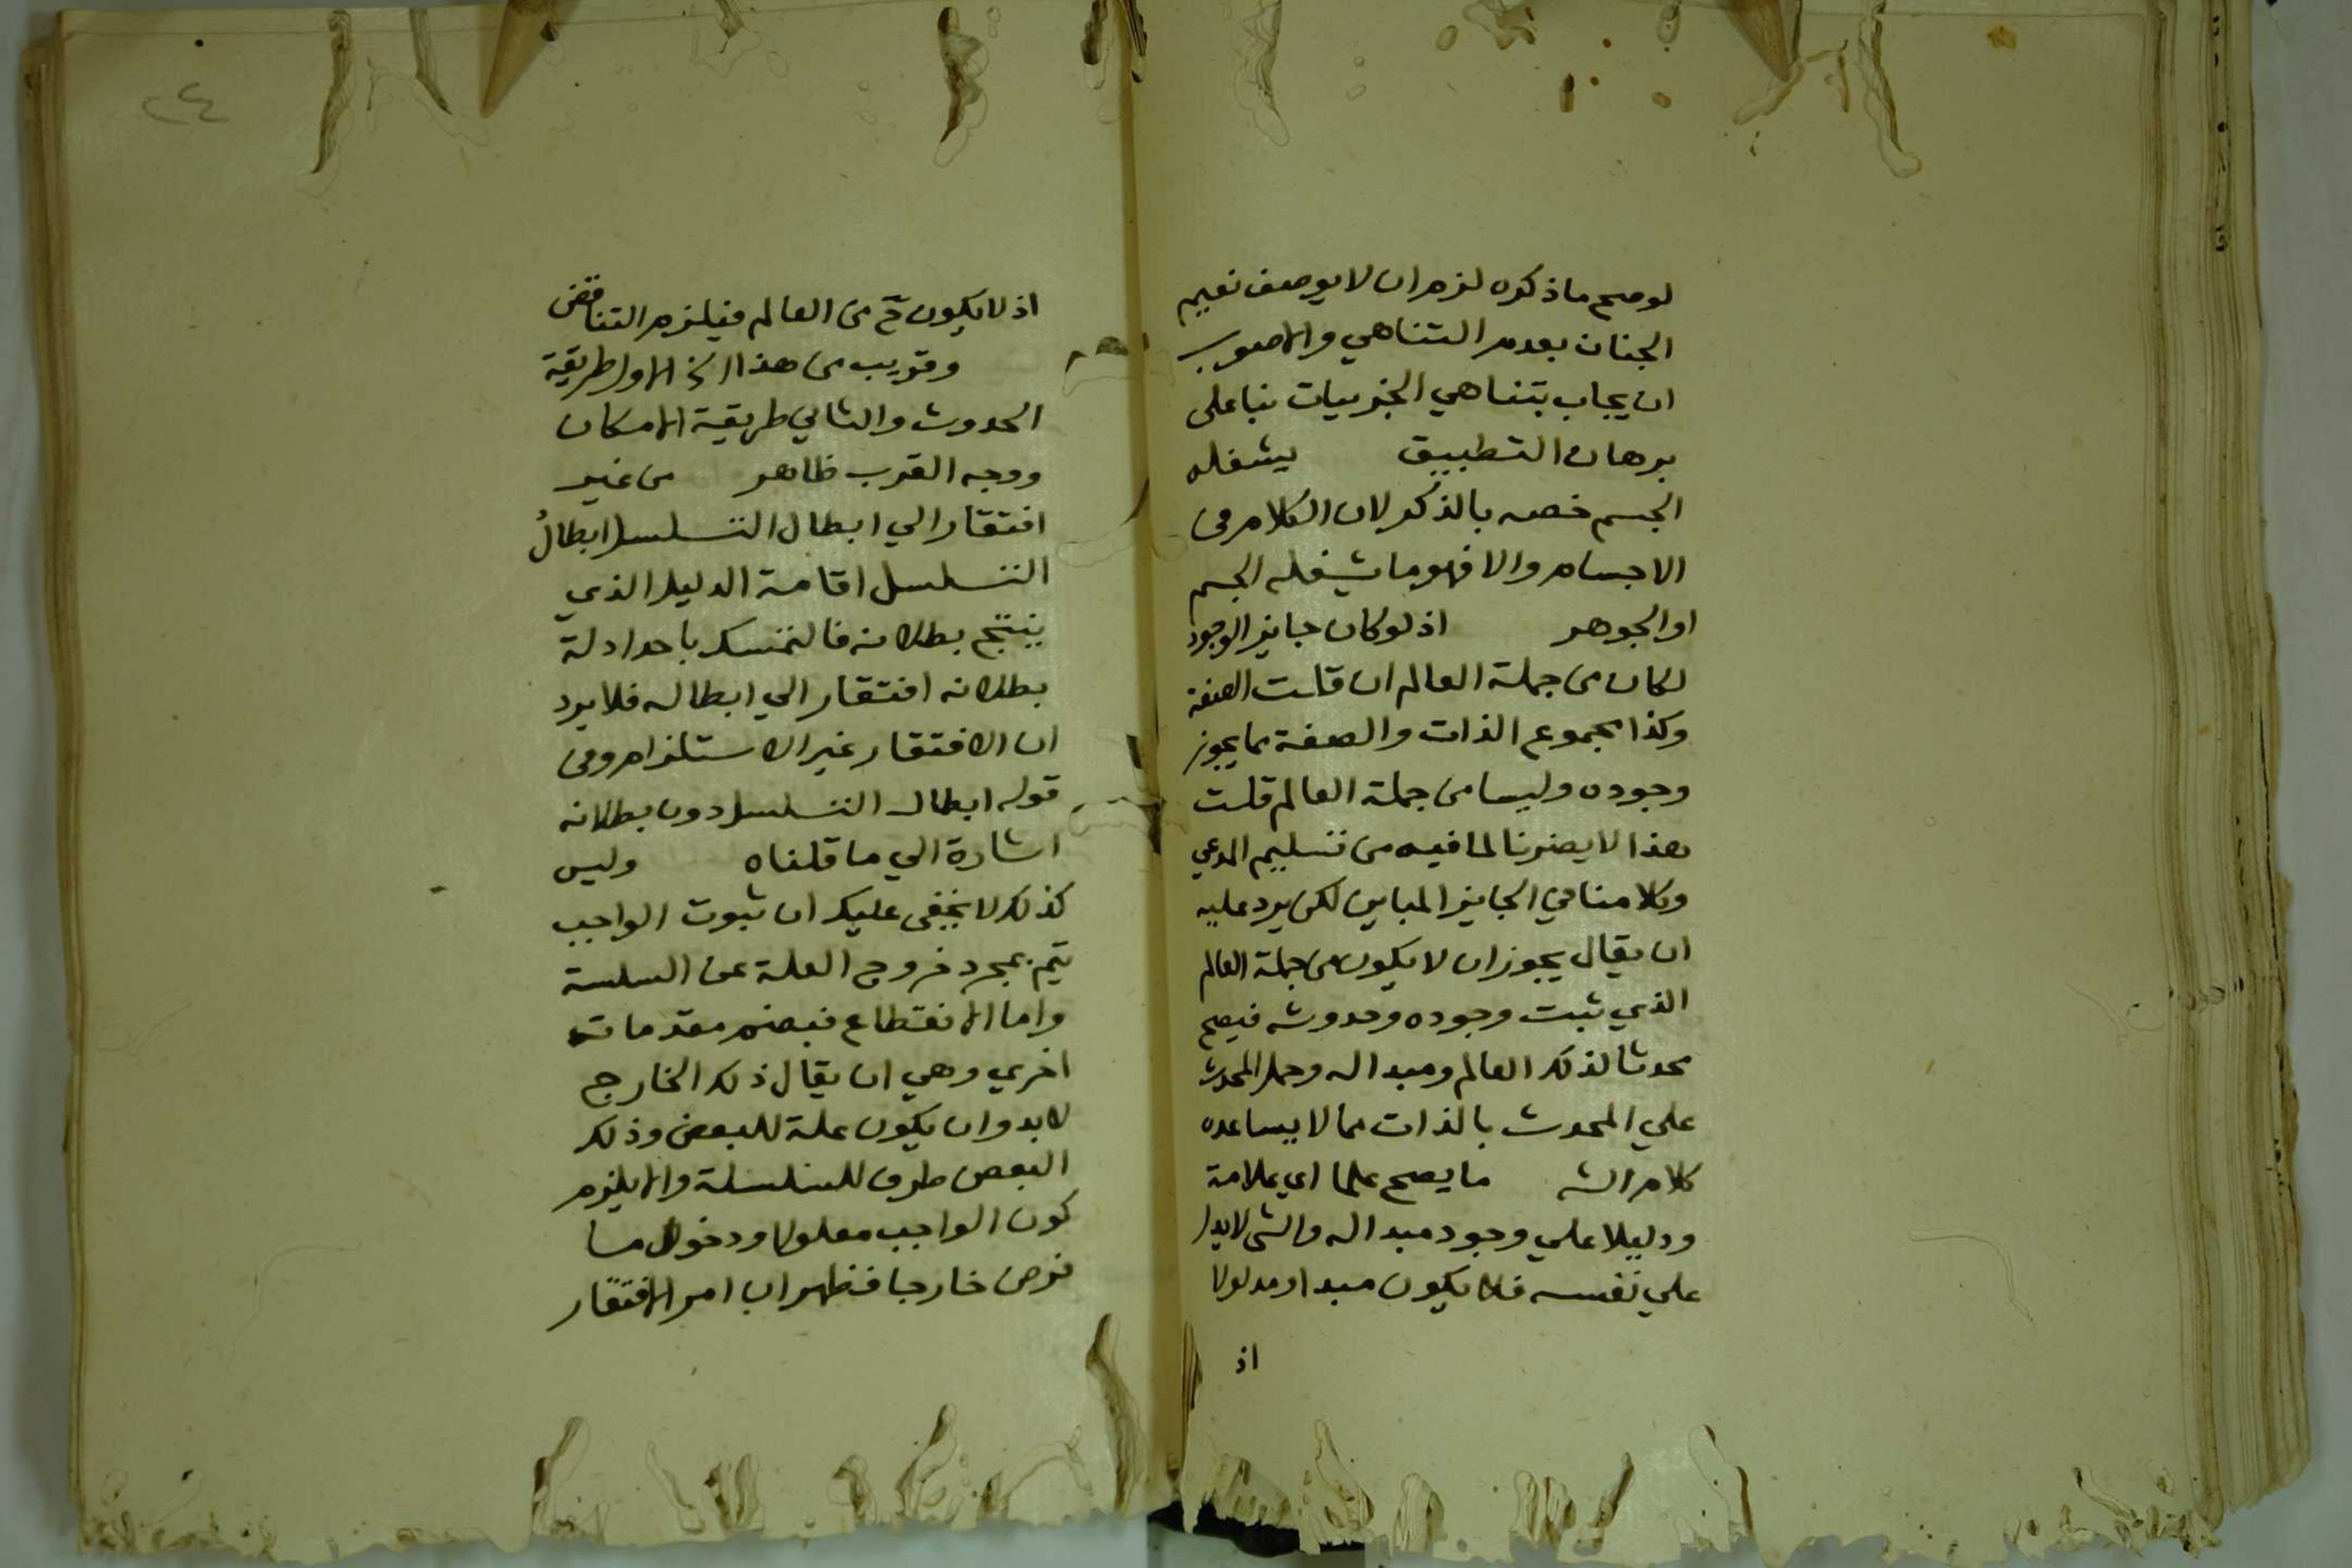 لو صح ما ذكره لزم ان لا يوصف نعيم
الجنان بعدم التناهي والاصوب
ان يجاب بتناهي الجزييات بنا على
برهان التطبيق يشغله
الجسم خصه بالذكر لان الكلام في
الاجسام والا فهو ما يشغله الجسم
او الجوهر اذ لو كان جايز الوجود
لكان من جملة العالم ان قلت الصفة
وكذا مجموع الذات والصفة مما يجوز
وجوده وليسا من جملة العالم قلت
هذا لا يضرنا لما فيه من تسليم المدعي
وكلامنا في الجايز المباين لكن يرد عليه
ان يقال يجوز ان لا يكون من جملة العالم
الذي ثبت وجوده وحدوثه فيصح
محدثا لذلك العالم ومبدا له وحمل المحدث
علي المحدث بالذات مما لا يساعده
كلام الشه ما يصح علما اي علامة
ودليلا علي وجود مبدا له والشي لا يدل
علي نفسه فلا يكون مبدا او مدلولا
اذ
٢٤
اذ لا يكون ح من العالم فيلزم التناقض
وقريب من هذا الخ الاول طريقة
الحدوث والثاني طريقة الامكان
ووجه القرب ظاهر من غير
افتقار الي ابطال التسلسل ابطال
التسلسل اقامة الدليل الذي
ينتج بطلانه فالتمسك باحد ادلة
بطلانه افتقار الي ابطاله فلا يرد
ان الافتقار غير الاستلزام وفي
قوله ابطال التسلسل دون بطلانه
اشارة الي ما قلناه وليس
كذلك لا يخفى عليك ان ثبوت الواجب
يتم بمجرد خروج العلة عن السلسة
واما الانقطاع فبضم مقدمات
اخري وهي ان يقال ذلك الخارج
لا بد وان يكون علة للبعض وذلك
البعض طرف للسلسلة والا يلزم
كون الواجب معلولا ودخول ما
فرض خارجا فظهر ان امر الافتقار